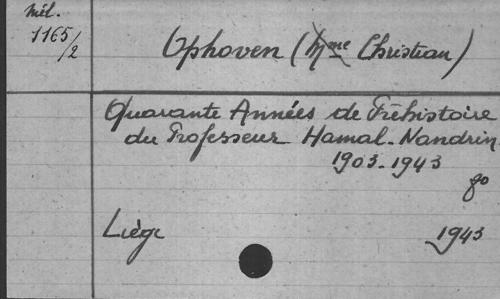 Mél.
1165/2
Ophoven (Mme Christian)
Quarante Années de Préhistoire
du Professeur Hamal-Nandrin
1903-1943
8o
Liège
1943